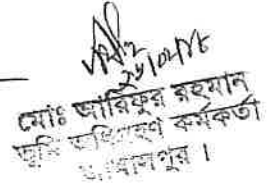 ২৮/০২/১৮
মোঃ আরিফুর রহমান
ভূমি অধিগ্রহণ কর্মকর্তা
জামালপুর ।